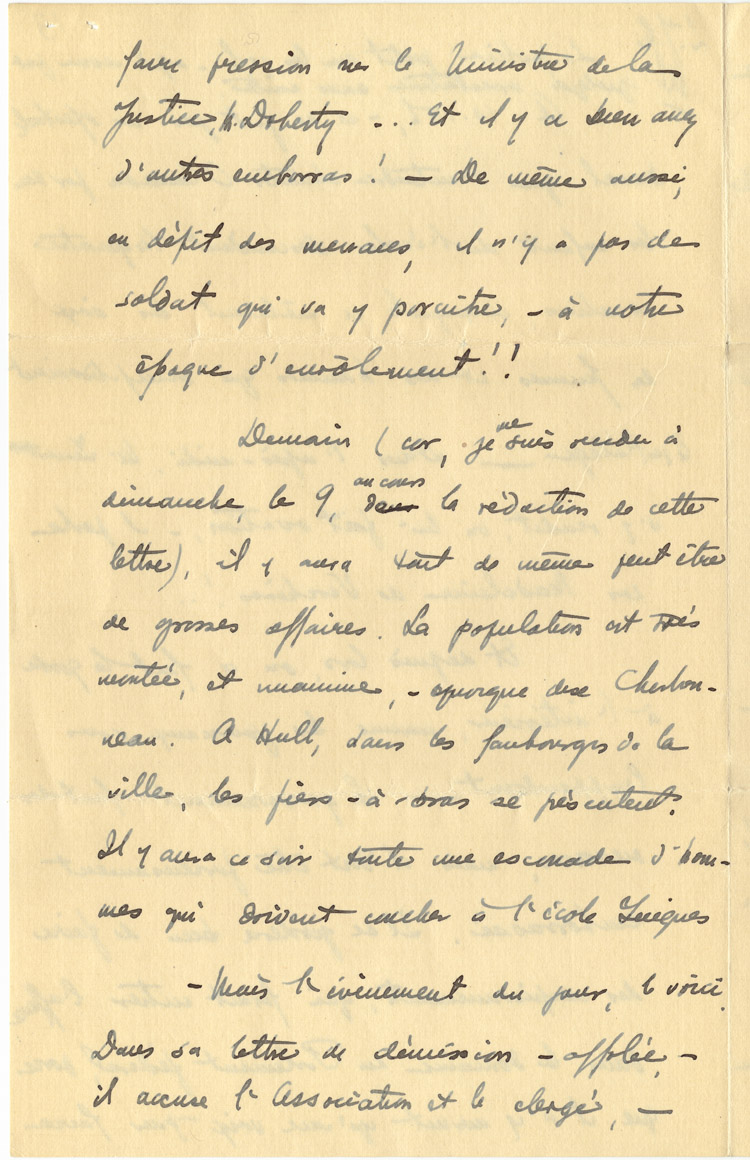 faire pression sur le Ministre de la
Justice, M. Doherty .... Et il y a bien assez
d'autres embarras ! — De même aussi,
en dépit des menaces, il n'y a pas de
soldat qui va y paraître, - à notre
époque d'enrôlement !!
Demain ( car, je me suis rendu à
dimanche, le 9, au cours la rédaction de cette
lettre), il y aura tout de même peut être
de grosses affaires. La population est très
montée, et unanime, - quoique dise Charbon-
neau. A Hull, dans les faubourgs de la
ville, les fiers-à-bras se présentent.
Il y aura ce soir toute une escouade d'hom-
mes qui doivent coucher à l'école Guigues
- Mais l'évènement du jour, le voici.
Dans sa lettre de démission - affolée, -
il accuse l'Association et le clergé, —